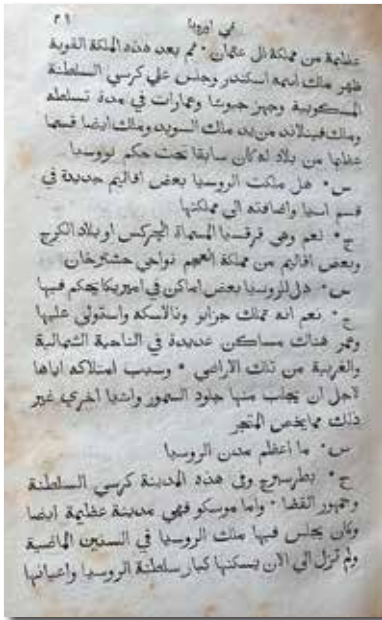 في اوروبا ٢٩
عظيمة من مملكة ال عثمان • ثم بعد هذه الملكة القوية
ظهر ملك اسمه اسكندر وجلس علي كرسي السلطنة
المسكوبية وجهز جيوشا وعمارات في مدة تسلطه
وملك فينلاند من يد ملك السويد وملك ايضا قسما
عظيما من بلاد له كان سابقا تحت حكم
س • هل ملكت الروسيا بعض اقاليم جديدة في
قسم اسيا واضافته الي مملكتها
ج • نعم وهي قرقسيا المسماة الچركس او بلاد الكرج
وبعض اقاليم من مملكة العجم نواحي حشترخان
س • هل للروسيا بعض اماكن في اميريكا يحكم فيها
ج • نعم انه تملك جزاير ونالاسكه واستولي عليها
وعمر هناك مساكن عديدة في الناحية الشمالية
والغربية من تلك الاراضي • وسبب امتلاكه اياها
لاجل ان يجلب منها جلود السمور واشيا اخري غير
ذلك مما يخص المتجر
س • ما اعظم مدن الروسيا
ج • بطرسبرج وفي هذه المدينة كرسي السلطنة
وجمهور القضا • واما موسكو فهي مدينة عظيمة ايضا
وكان يجلس فيها ملك الروسيا في السنين الماضية
ولم تزل الي الان يسكنها كبار سلطنة الروسيا واعيانها